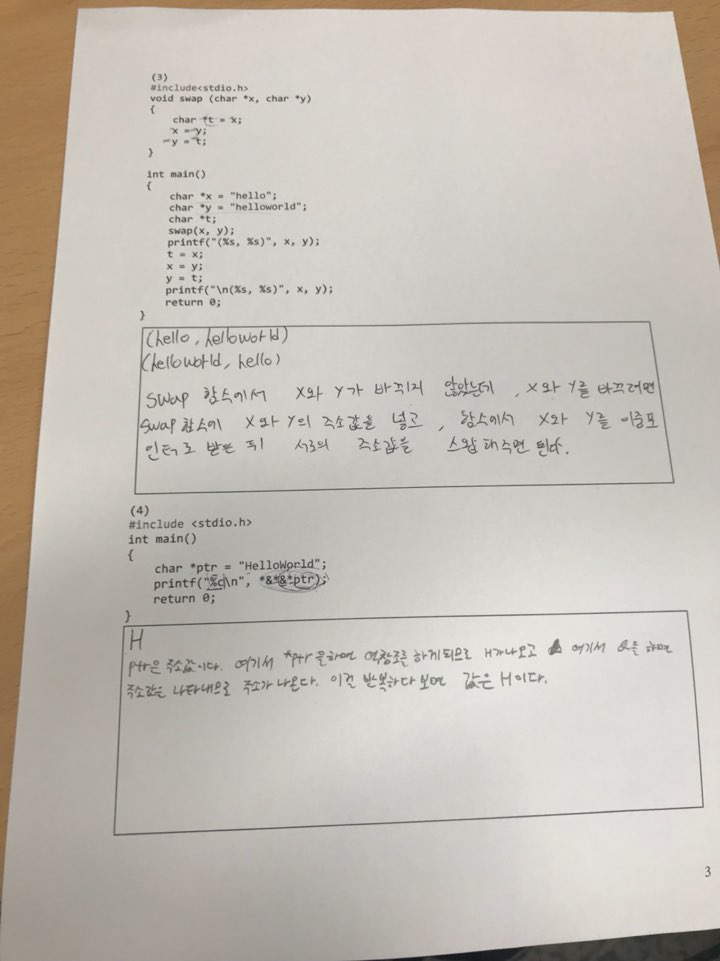 (3)
#include<stdio.h>
void swap (char *x, char *y)
{
char *t = x;
x = y;
y = t;
}
int main()
{
char *x = "hello";
char *y = "helloworld";
char *t;
swap(x, y);
printf("(%s, %s)", x, y);
t = x;
x = y;
y = t;
printf("\n(%s, %s)", x, y);
return 0;
}
(hello, helloworld)
(helloworld, hello)
swap 함수에서 x와 y가 바뀌지 않았는데, x와 y를 바꾸려면
swap 함수에 x와 y의 주소값을 넣고, 함수에서 x와 y를 이중포
인터로 받은 뒤 서로의 주소값을 스왑 해주면 된다.
(4)
#include <stdio.h>
int main()
{
char *ptr = "HelloWorld";
printf("%c\n", *&*&*ptr);
return 0;
}
H
ptr은 주소값이다. 여기서 *ptr을하면 역참조를 하게되므로 H가나오고 여기서 &을 하면
주소값을 나타내므로 주소가 나온다. 이걸 반복하다보면 값은 H이다.
3